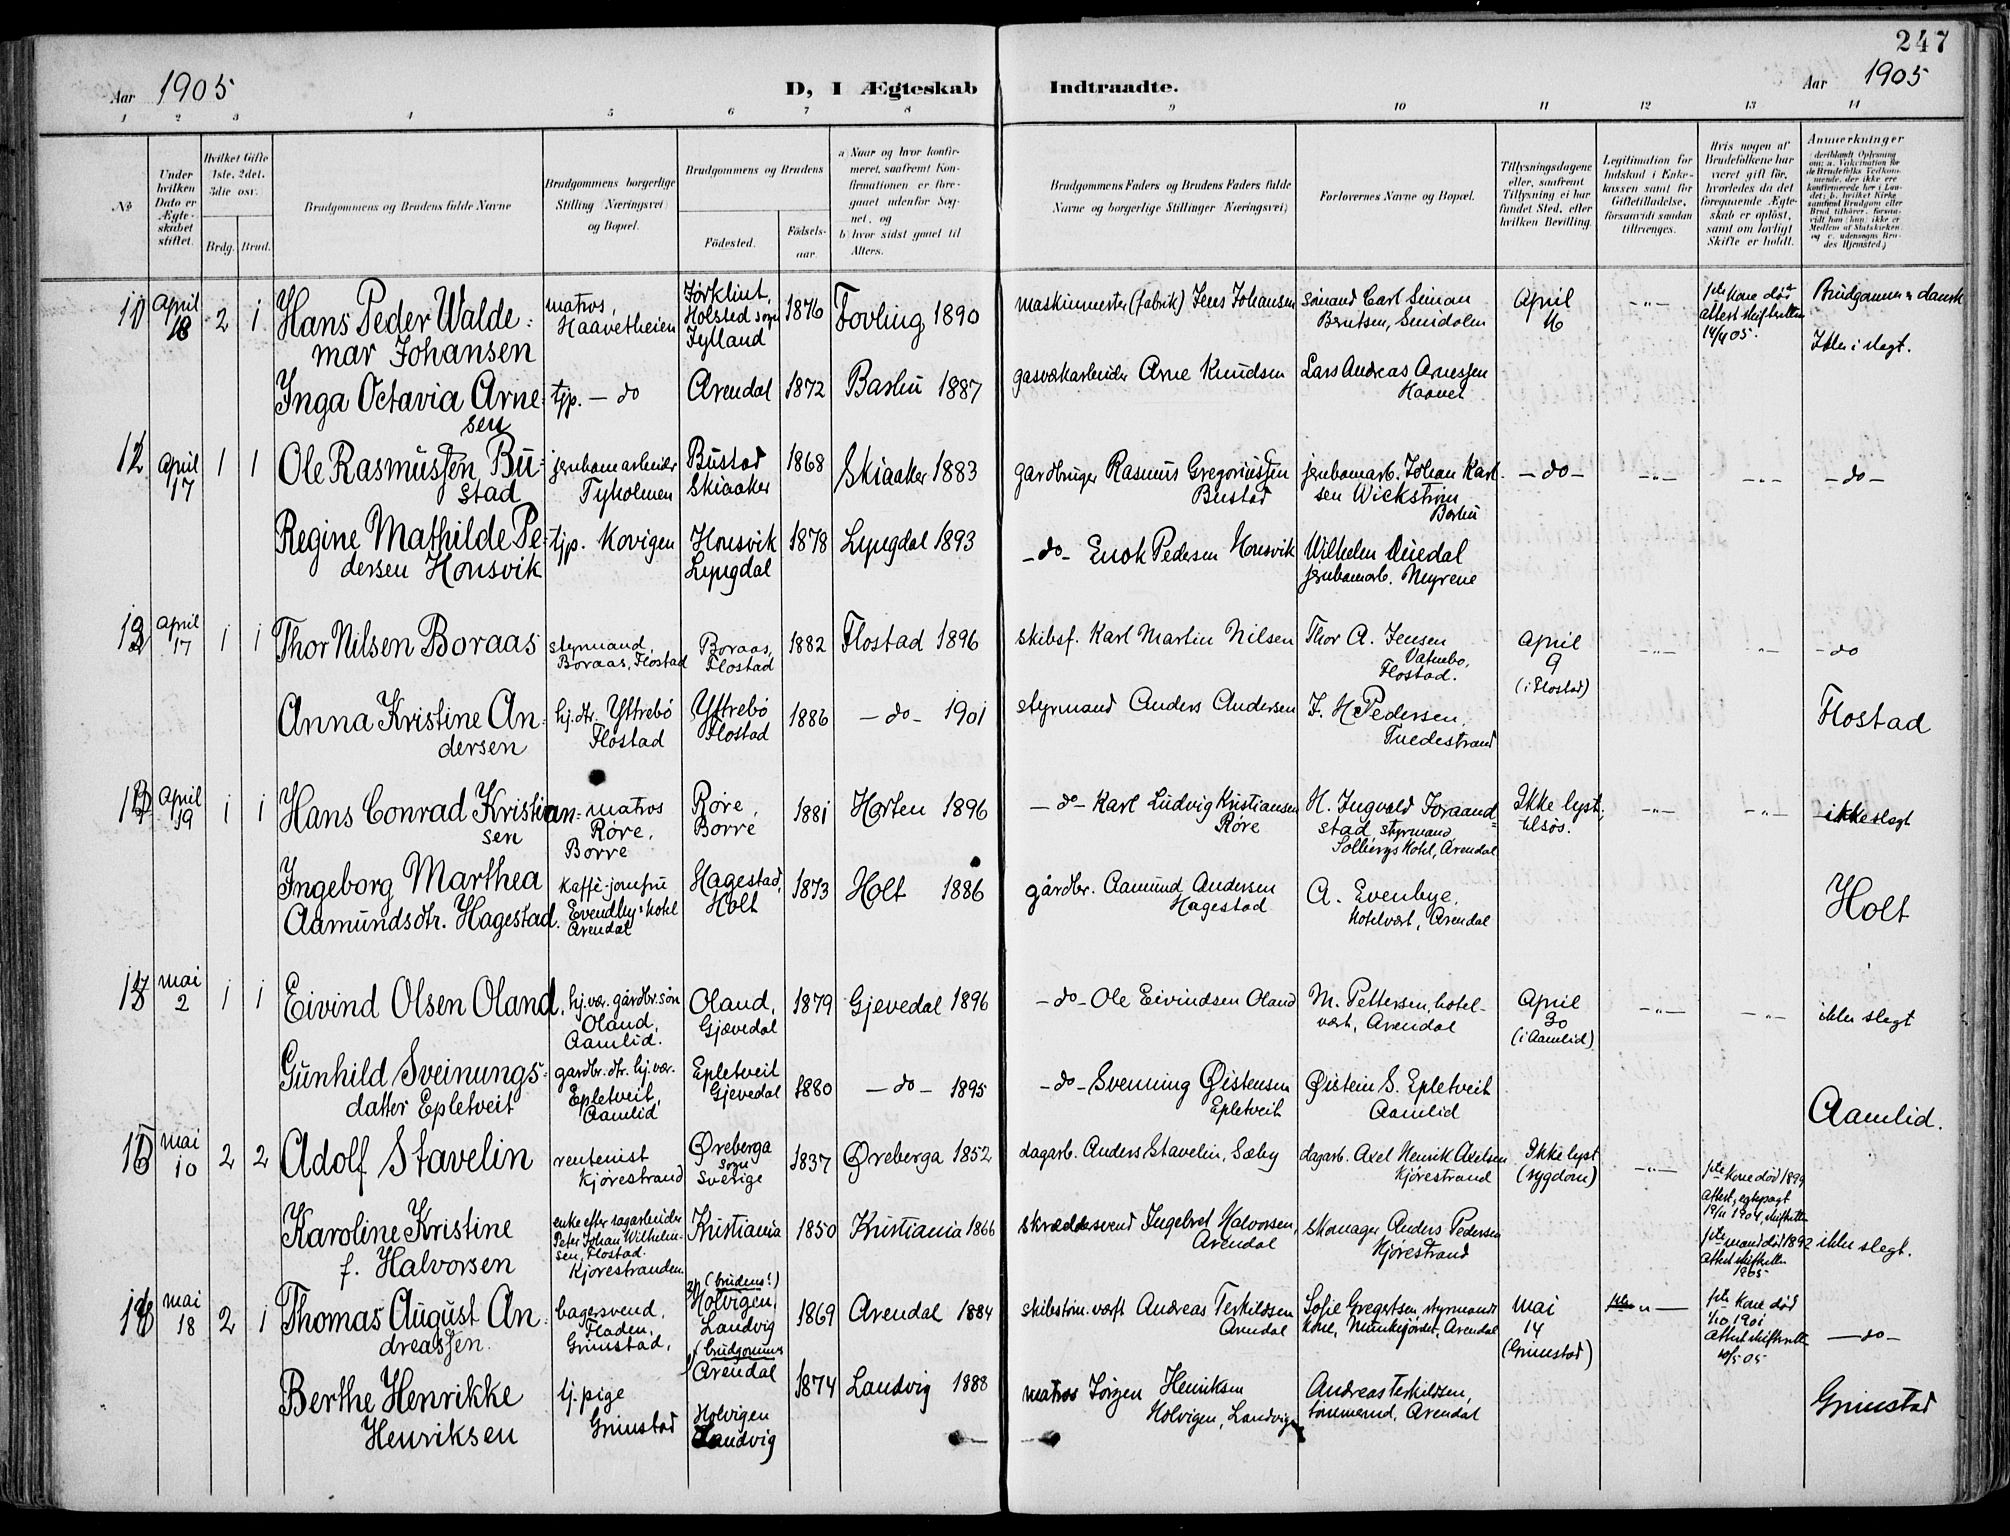 247
Aar 1905
D, I Ægteskab
Indtraadte.
Aar 1905
1 2 3 4 5 6 7 8 9 10 11 12 13 14
No
Under
hvilken
Dato er
Ægte-
skabet
stiftet.
Hvilket Gifte
1ste, 2det,
3die osv.
Brdg. Brud.
Brudgommens og Brudens fulde Navne
Brudgommens borgerlige
Stilling (Næringsvei)
og Bopæl.
Brudgommens og Brudens
Fødested.
Fødsels-
aar.
a) Naar og hvor konfir-
meret, saafremt Kon-
firmationen er fore-
gaaet udenfor Sog-
net, og
b) hvor sidst gaaet til
Alters.
Brudgommens Faders og Brudens Faders fulde
Navne og borgerlige Stillinger (Næringsvei)
Forlovernes Navne og Bopæl.
Tillysningsdagene
eller, saafremt
Tillysning ei har
fundet Sted, efter
hvilken Bevilling.
Legitimation for
Indskud i Enke-
kassen samt for
Giftetilladelse,
forsaavidt saadan
tiltrænges.
Hvis nogen af
Brudefolkene har
været gift før,
hvorledes da det
foregaaende Ægte-
skab er opløst,
samt om lovligt
Skifte er holdt.
Anmerkninger
(deriblandt Oplysning
om: a. Vakcination for
de Brudefolks Vedkom-
mende, der ikke ere
konfirmerede her i Lan-
det; b. hvilket Kirke-
samfund Brudgom eller
Brud tilhører, forsaa-
vidt han (hun) ikke er
Medlem af Statskirken,
og c. udensogns Bru-
des Hjemsted.)
April
18
2 1
Hans Peder Walde-
mar Johansen
matros,
Haavetheien
Jørklint,
Holsted sogn
Jylland
1876
Fovling 1890
maskinmester (fabrik) Jens Johansen
sømand Carl Simon
Berntsen, Smidalen
April
16
-"-
1ste kone død
attest skifteretten
14/4 05.
Brudgommen er dansk
Ikke i slegt.
Inga Octavia Arne-
sen
tjp. - do
Arendal
1872
Barbu 1887
gasverkarbeider Arne Knudsen
Lars Andreas Arnessen
Haavet
12
April
17
1 1
Ole Rasmussen Bu-
stad
jernbanearbeider
Tyholmen
Bustad
Skiaaker
1868
Skiaaker 1883
gardbruger Rasmus Gregoriussen
Bustad
jernbanearb. Johan Karl-
sen Wickstrøm
Barbu
- do -
-"-
-"-
- do -
Regine Mathilde Pe-
dersen Housvik
tjp. Kovigen
Housvik
Lyngdal
1878
Lyngdal 1893
- do - Enok Pedersen Housvik
Wilhelm
jernbanearb. Myrene
13
April
17
1 1
Thor Nilsen Boraas
styrmand,
Boraas, Flostad
Boraas,
Flostad
1882
Flostad 1896
skibsf. Karl Martin Nilsen
Thor A. Jensen
Vatnebo,
Flostad.
April
9
(i Flostad)
-"-
-"-
- do
Anna Kristine An-
dersen
hj. dtr. Yttrebö
Flostad
Yttrebö
Flostad
1886
- do - 1901
styrmand Anders Andersen
J. H. Pedersen,
Tvedestrand
Flostad
April
19
1 1
Hans Conrad Kristian-
sen
matros
Røre,
Borre
Røre,
Borre
1881
Horten 1896
- do - Karl Ludvig Kristiansen
Røre
H. Ingvald Foraand-
stad, styrmand
Solbergs Hotel, Arendal
Ikke lyst;
tilsøs.
-"-
-"-
ikke slegt
Ingeborg Marthea
Aamundsdtr. Hagestad.
kaffe-jomfru
Evendbys hotel
Arendal
Hagestad,
Holt
1873
Holt 1886
gårdbr. Aamund Andersen
Hagestad
A. Evenbye,
hotelvært, Arendal
Holt
mai
2
1 1
Eivind Olsen Oland,
hj. vær. gårdbr. søn
Oland,
Aamlid.
Oland,
Gjævedal
1879
Gjevedal 1896
- do - Ole Eivindsen Oland
M. Pettersen, hotel-
vært, Arendal
April
30
(i Aamlid)
-"-
-"-
ikke slegt
Gunhild Sveinungs-
datter Epletveit
gardbr. dtr. hj. vær.
Epletveit,
Aamlid
Epletveit
Gjevedal
1880
- do - 1895
- do - Svenning Øistensen
Epletveit
Øistein S. Epletveit
Aamlid
Aamlid.
mai
10
2 2
Adolf Stavelin
rentenist
Kjørestrand
Øreberga
sogn
Sverige
1837
Øreberga 1852
dagarb. Anders Stavelin, Sæby
dagarb. Axel Henrik Axelsen
Kjørestrand
Ikke lyst
(sygdom)
-"-
1ste kone død 1899
attest, egtepagt
19/11 1904, skifteretten
Karoline Kristine
f. Halvorsen
enke efter sagarbeider
Peter Johan Wilhelm-
sen, Flostad.
Kjørestranden.
Kristiania
1850
Kristiania 1866
skræddesvend Ingebret Halvorsen,
Arendal
skomager Anders Pedersen
Kjørestrand
1ste mand død 1892
Attest skifteretten
1905
ikke slegt.
mai
18
2 1
Thomas August An-
dreassen.
bagersvend,
Fladen,
Grimstad,
(brudens!)
Holvigen,
Landvig
(brudgommens
Arendal
1869
Arendal 1884
skibstøm. værft Andreas Terkildsen
Arendal
Sofie Gregertsen, styrmands
kone, Munkejordet, Arendal
mai
14
(Grimstad)
1ste kone død
1/10 1901
Attest skifteretten
10/5 05
- do -
Berthe Henrikke
Henriksen
tj. pige
Grimstad
Holvigen
Landvig
1874
Landvig 1888
matros Jörgen Henriksen
Holvigen, Landvig
Andreas Terkildsen,
tømmermd, Arendal
Grimstad